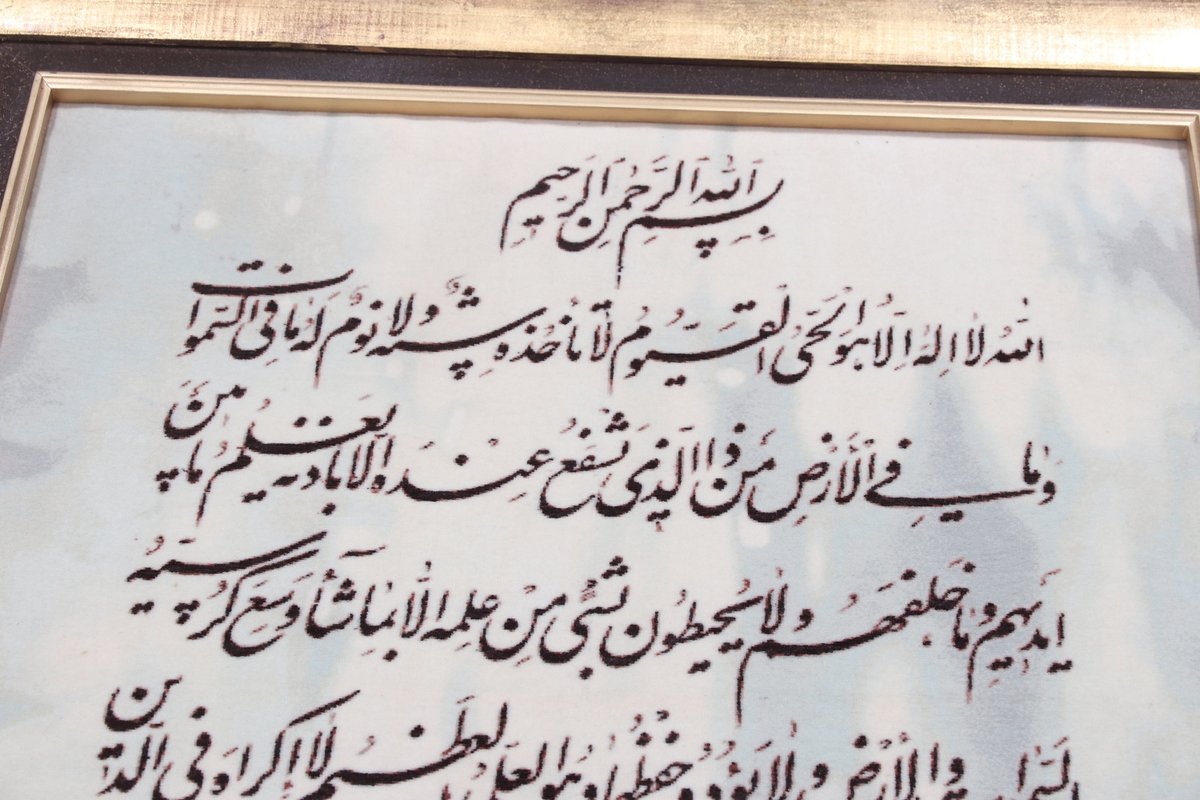 بِسْمِ اللهِ الرَّحْمٰنِ الرَّحِيمِ
اللهُ لا اِلهَ اِلّا هُوَ الْحَيُّ الْقَيُّومُ لا تَأخُذُهُ سِنَةٌ وَلا نَوْمٌ لَهُ ما فِي السَّمٰوات
وَما فِي الْأَرْضِ مَنْ ذَا الَّذِي يَشْفَعُ عِنْدَهُ اِلّا بِاذنِهِ يَعْلَمُ ما بَيْنَ
اَيديهِم وَما خَلفَهُم وَلا يُحيطُونَ بِشَيْءٍ مِنْ عِلمِهِ اِلّا بِما شآءَ وَسِعَ كُرسِيُّهُ
السَّمٰوات وَالْأَرْضَ وَلا يَؤُودُهُ حِفْظُهُما وَهُوَ العَلِيُّ العَظيمُ لا اِكراهَ فِي الدّينِ